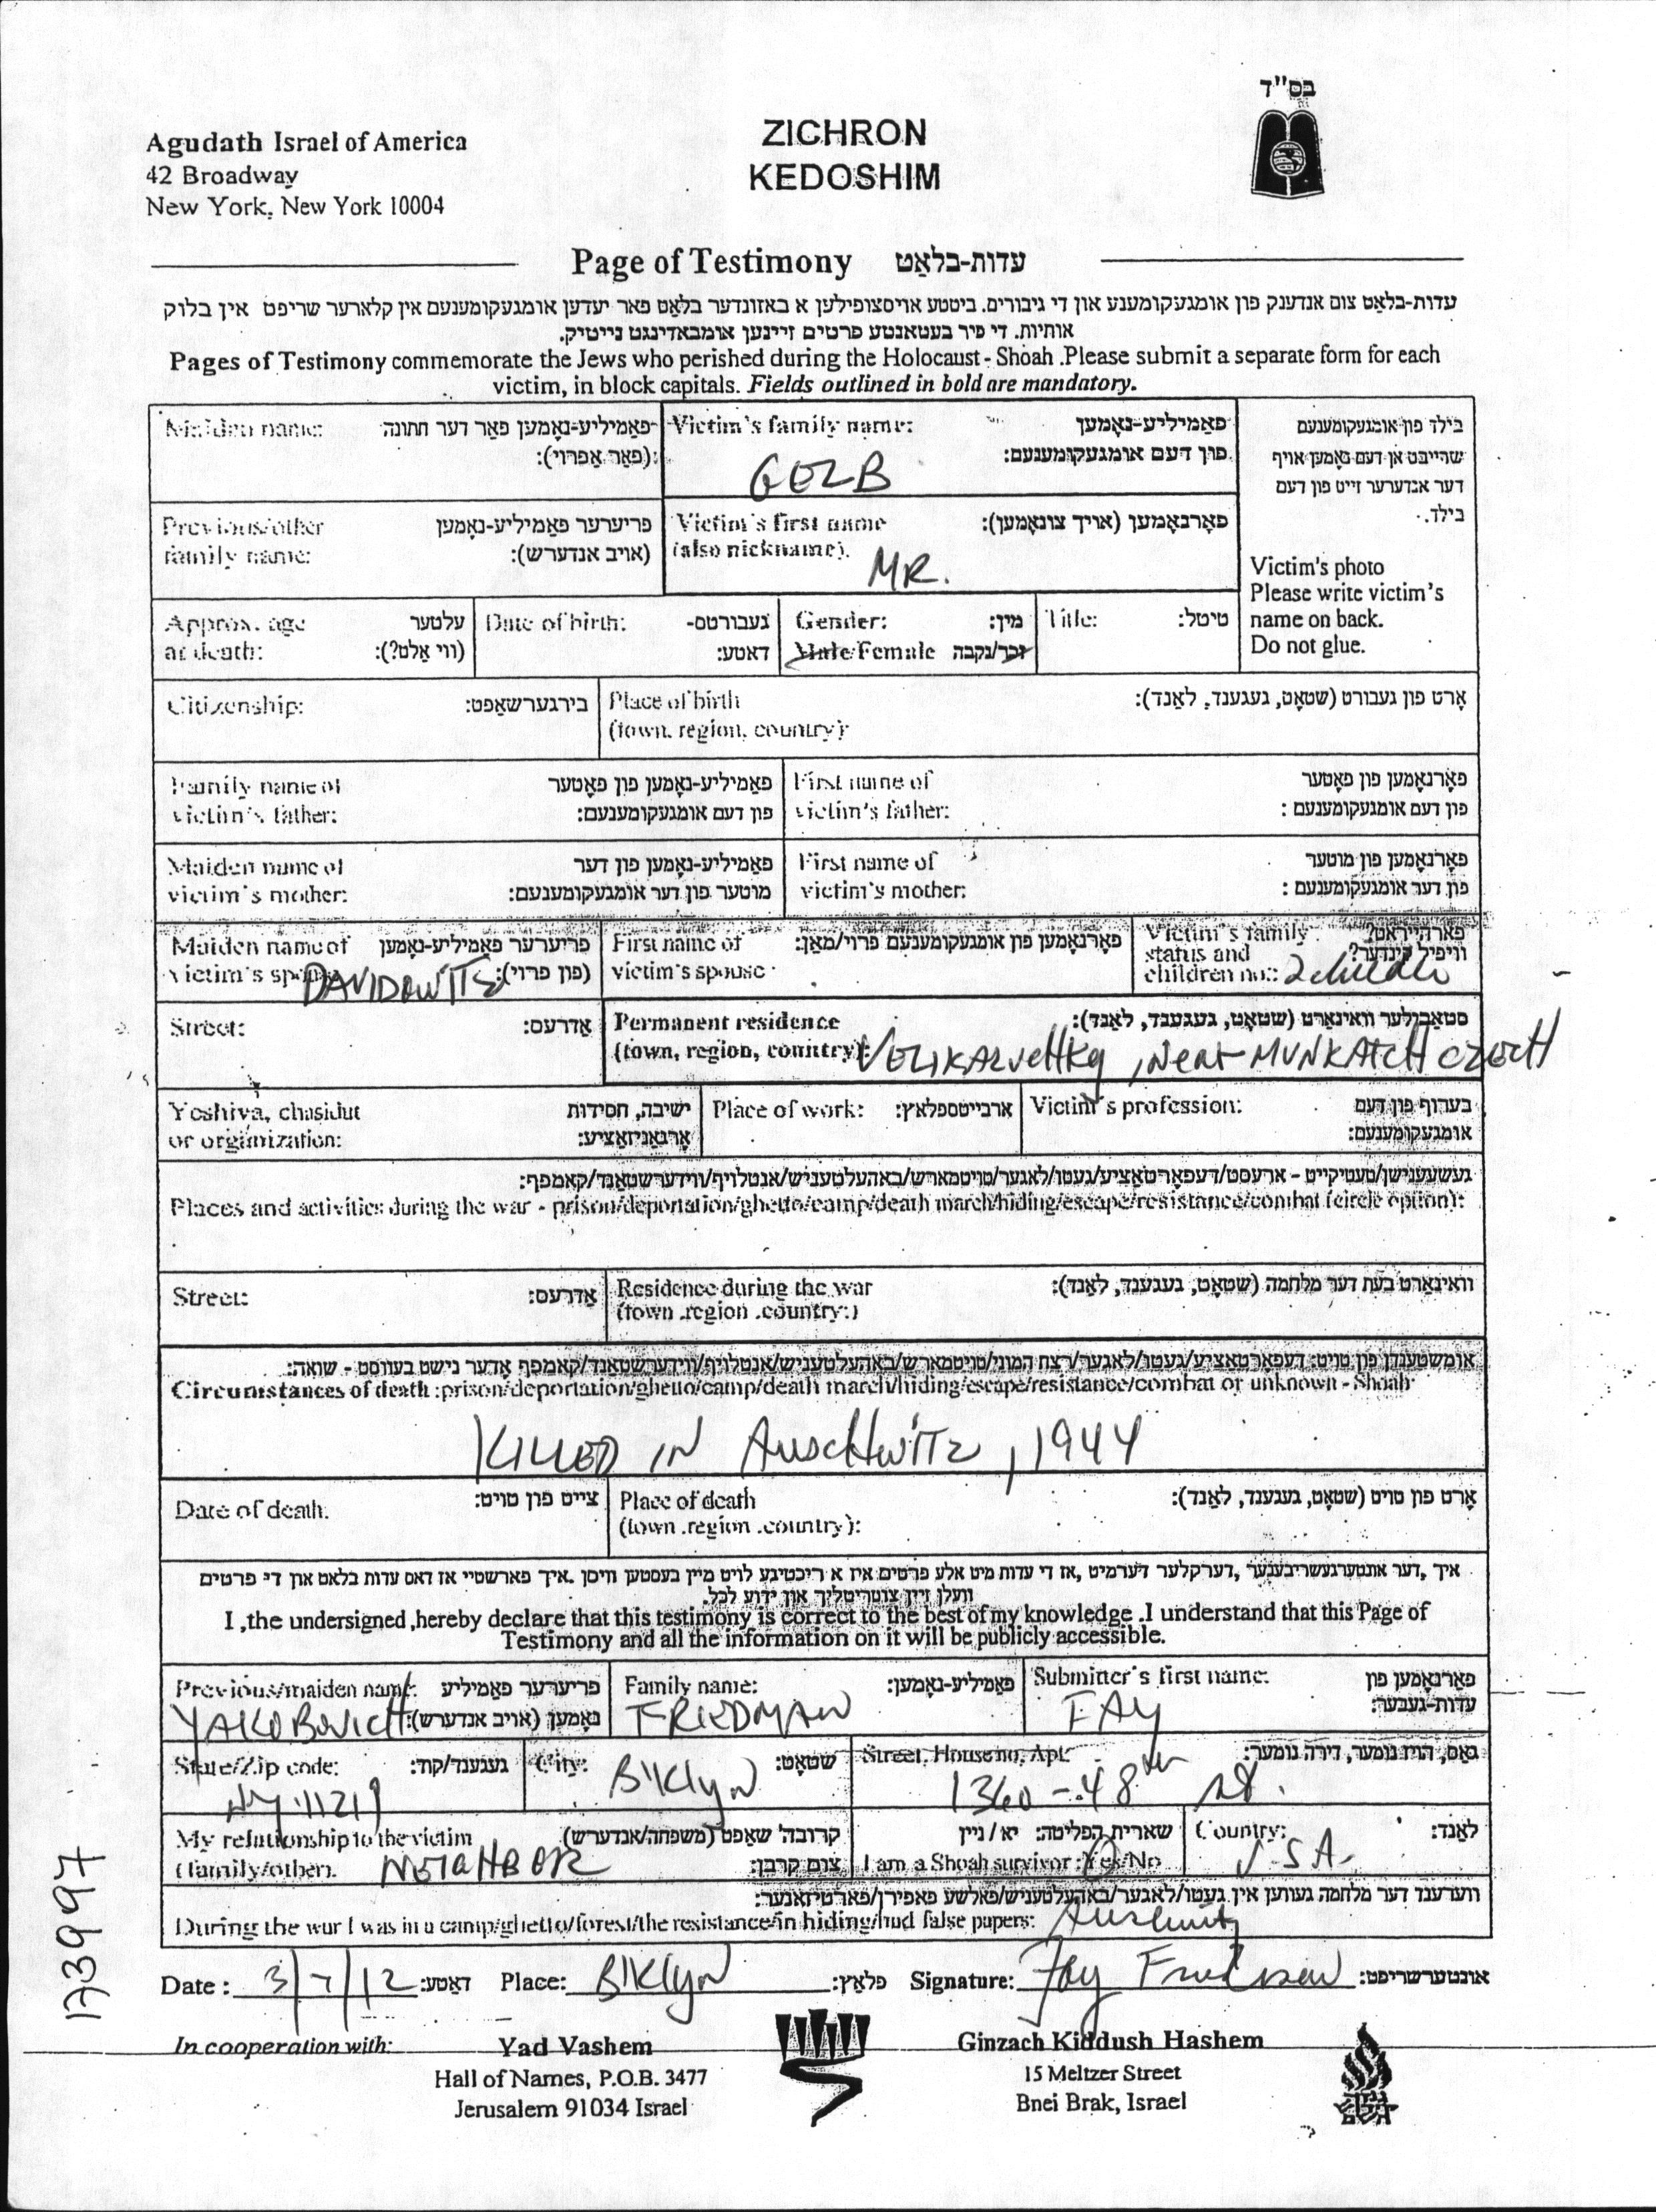 בס"ד
Agudath Israel of America
42 Broadway
New York, New York 10004
ZICHRON
KEDOSHIM
Page of Testimony עדות-בלאַט
עדות-בלאַט צום אנדענק פון אומגעקומענע און די גיבורים. ביטטע אויסצופילען א באזונדער בלאַט פאר יעדען אומגעקומענעם אין קלארער שריפט אין בלוק
אותיות. די פיר בעטאנטע פרטים זיינען אומבאדינגט נייטיק.
Pages of Testimony commemorate the Jews who perished during the Holocaust - Shoah .Please submit a separate form for each
victim, in block capitals. Fields outlined in bold are mandatory.
Maiden name: פאַמיליע-נאָמען פאַר דער חתונה
(פאַר אַפרוי):
Victim's family name: פאַמיליע-נאָמען
פון דעם אומגעקומענעם:
GELB
בילד פון אומגעקומענעם
שרייבט אן דעם נאָמען אויף
דער אנדערער זייט פון דעם
בילד.
Previous/other פריערער פאַמיליע-נאָמען
family name: (אויב אנדערש):
Victim's first name פאָרנאָמען (אויך צונאָמען):
(also nickname).
MR.
Victim's photo
Please write victim's
name on back.
Do not glue.
Approx. age עלטער
at death: (ווי אַלט?):
Date of birth: געבורטס-
דאטע:
Gender: מין:
Male/Female זכר/נקבה
Title: טיטל:
Citizenship: בירגערשאַפט:
Place of birth אָרט פון געבורט (שטאָט, געגענד, לאַנד):
(town, region, country):
Family name of פאַמיליע-נאָמען פון פאָטער
victim's father: פון דעם אומגעקומענעם:
First name of פאָרנאָמען פון פאָטער
victim's father: פון דעם אומגעקומענעם :
Maiden name of פאַמיליע-נאָמען פון דער
victim's mother: מוטער פון דער אומגעקומענעם:
First name of פאָרנאָמען פון מוטער
victim's mother: פון דער אומגעקומענעם :
Maiden name of פריערער פאַמיליע-נאָמען
victim's spouse (פון פרוי):
DAVIDOWITS
First name of פאָרנאָמען פון אומגעקומענעם פרוי/מאַן:
victim's spouse
Victim's family פארהייראט?
status and וויפיל קינדער?
children no:
Street: אַדרעס:
Permanent residence סטאַבילער וואוינאָרט (שטאָט, געגענד, לאַנד):
(town, region, country):
near MUNKATCH CZECH
Yeshiva, chasidut ישיבה, חסידות
or organization: אָרגאַניזאַציע:
Place of work: ארבייטספלאץ:
Victim's profession: בערוף פון דעם
אומגעקומענעם:
געשעענישן/טעטיקייט - ארעסט/דעפאָרטאַציע/געטו/לאַגער/טויטמארש/באַהעלטעניש/אנטלויף/ווידערשטאַנד/קאמפף:
Places and activities during the war - prison/deportation/ghetto/camp/death march/hiding/escape/resistance/combat (circle option):
Street: אַדרעס:
Residence during the war וואוינאָרט בעת דער מלחמה (שטאָט, געגענד, לאַנד):
(town .region .country:)
אומשטענדן פון טויט: דעפאָרטאַציע/געטו/לאַגער/רצח המוני/טויטמארש/באַהעלטעניש/אנטלויף/ווידערשטאַנד/קאמפף אָדער נישט בעוווסט - שואה:
Circumstances of death :prison/deportation/ghetto/camp/death march/hiding/escape/resistance/combat or unknown - Shoah
KILLED IN AUSCHWITZ, 1944
Date of death. צייט פון טויט:
Place of death אָרט פון טויט (שטאָט, געגענד, לאַנד):
(town .region .country):
איך ,דער אונטערגעשריבענער ,דערקלער דערמיט ,אז די עדות מיט אלע פרטים איז א ריכטיגע לויט מיין בעסטען וויסן .איך פארשטיי אז דאס עדות בלאט און די פרטים
וועלן זיין צוטריטליך און ידוע לכל.
I ,the undersigned ,hereby declare that this testimony is correct to the best of my knowledge .I understand that this Page of
Testimony and all the information on it will be publicly accessible.
Previous/maiden name: פריערער פאַמיליע
נאָמען (אויב אנדערש):
YAKOBOVICH
Family name: פאַמיליע-נאָמען:
FRIEDMAN
Submitter's first name: פאָרנאָמען פון
עדות-געבער:
FAY
State/Zip code: געגענד/קוד:
NY 11219
City: שטאָט:
BKlyn
Street, House no, Apt: גאַס, הויז נומער, דירה נומער:
1360 - 48th st.
My relationship to the victim קרובה'שאַפט (משפחה/אנדערש)
(family/other). צום קרבן:
NEIGHBOR
שארית הפליטה: יא / ניין
I am a Shoah survivor :Yes/No
Country: לאַנד:
U.S.A.
ווערענד דער מלחמה געווען אין געטו/לאגער/באַהעלטעניש/פאלשע פאפירן/פארטיזאנער:
During the war I was in a camp/ghetto/forest/the resistance/in hiding/had false papers: Auschwitz
Date : 3/7/12 דאַטע: Place: BKlyn פלאַץ: Signature: Fay Friedman אונטערשריפט:
In cooperation with:
Yad Vashem
Hall of Names, P.O.B. 3477
Jerusalem 91034 Israel
Ginzach Kiddush Hashem
15 Meltzer Street
Bnei Brak, Israel
173997